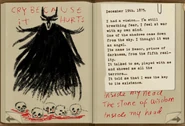 CRY BECAUSE
IT HURTS
December 18th, 1875.
I had a vision... I'm still
breathing fear, I feel it all
with my own mind.
One of the shadows came down
from the sky. I thought it was
an angel.
His name is Desert, prince of
Darkness, from the fifth reality.
It talked to me, played with me
and showed me all the
horrors...
It told me that I was the way
to its existence.
Inside my head
The shine of
Inside my head